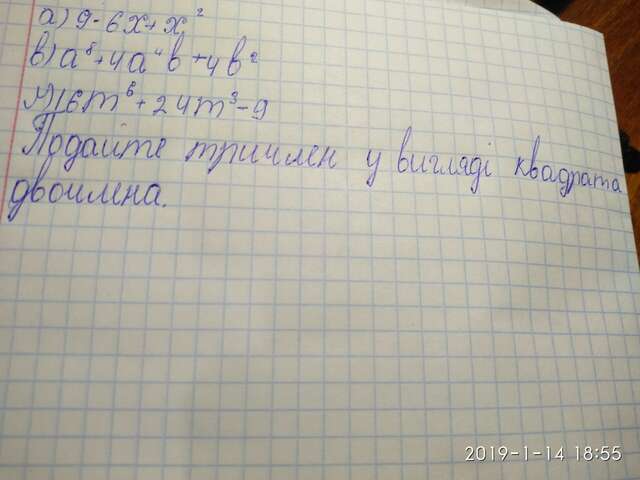 а) 9-6x+x²
в) a⁸+4a⁴b+4b²
м) 16m⁶+24m³-9
Подайте тричлен у вигляді квадрата
двочлена.
2019-1-14 18:55